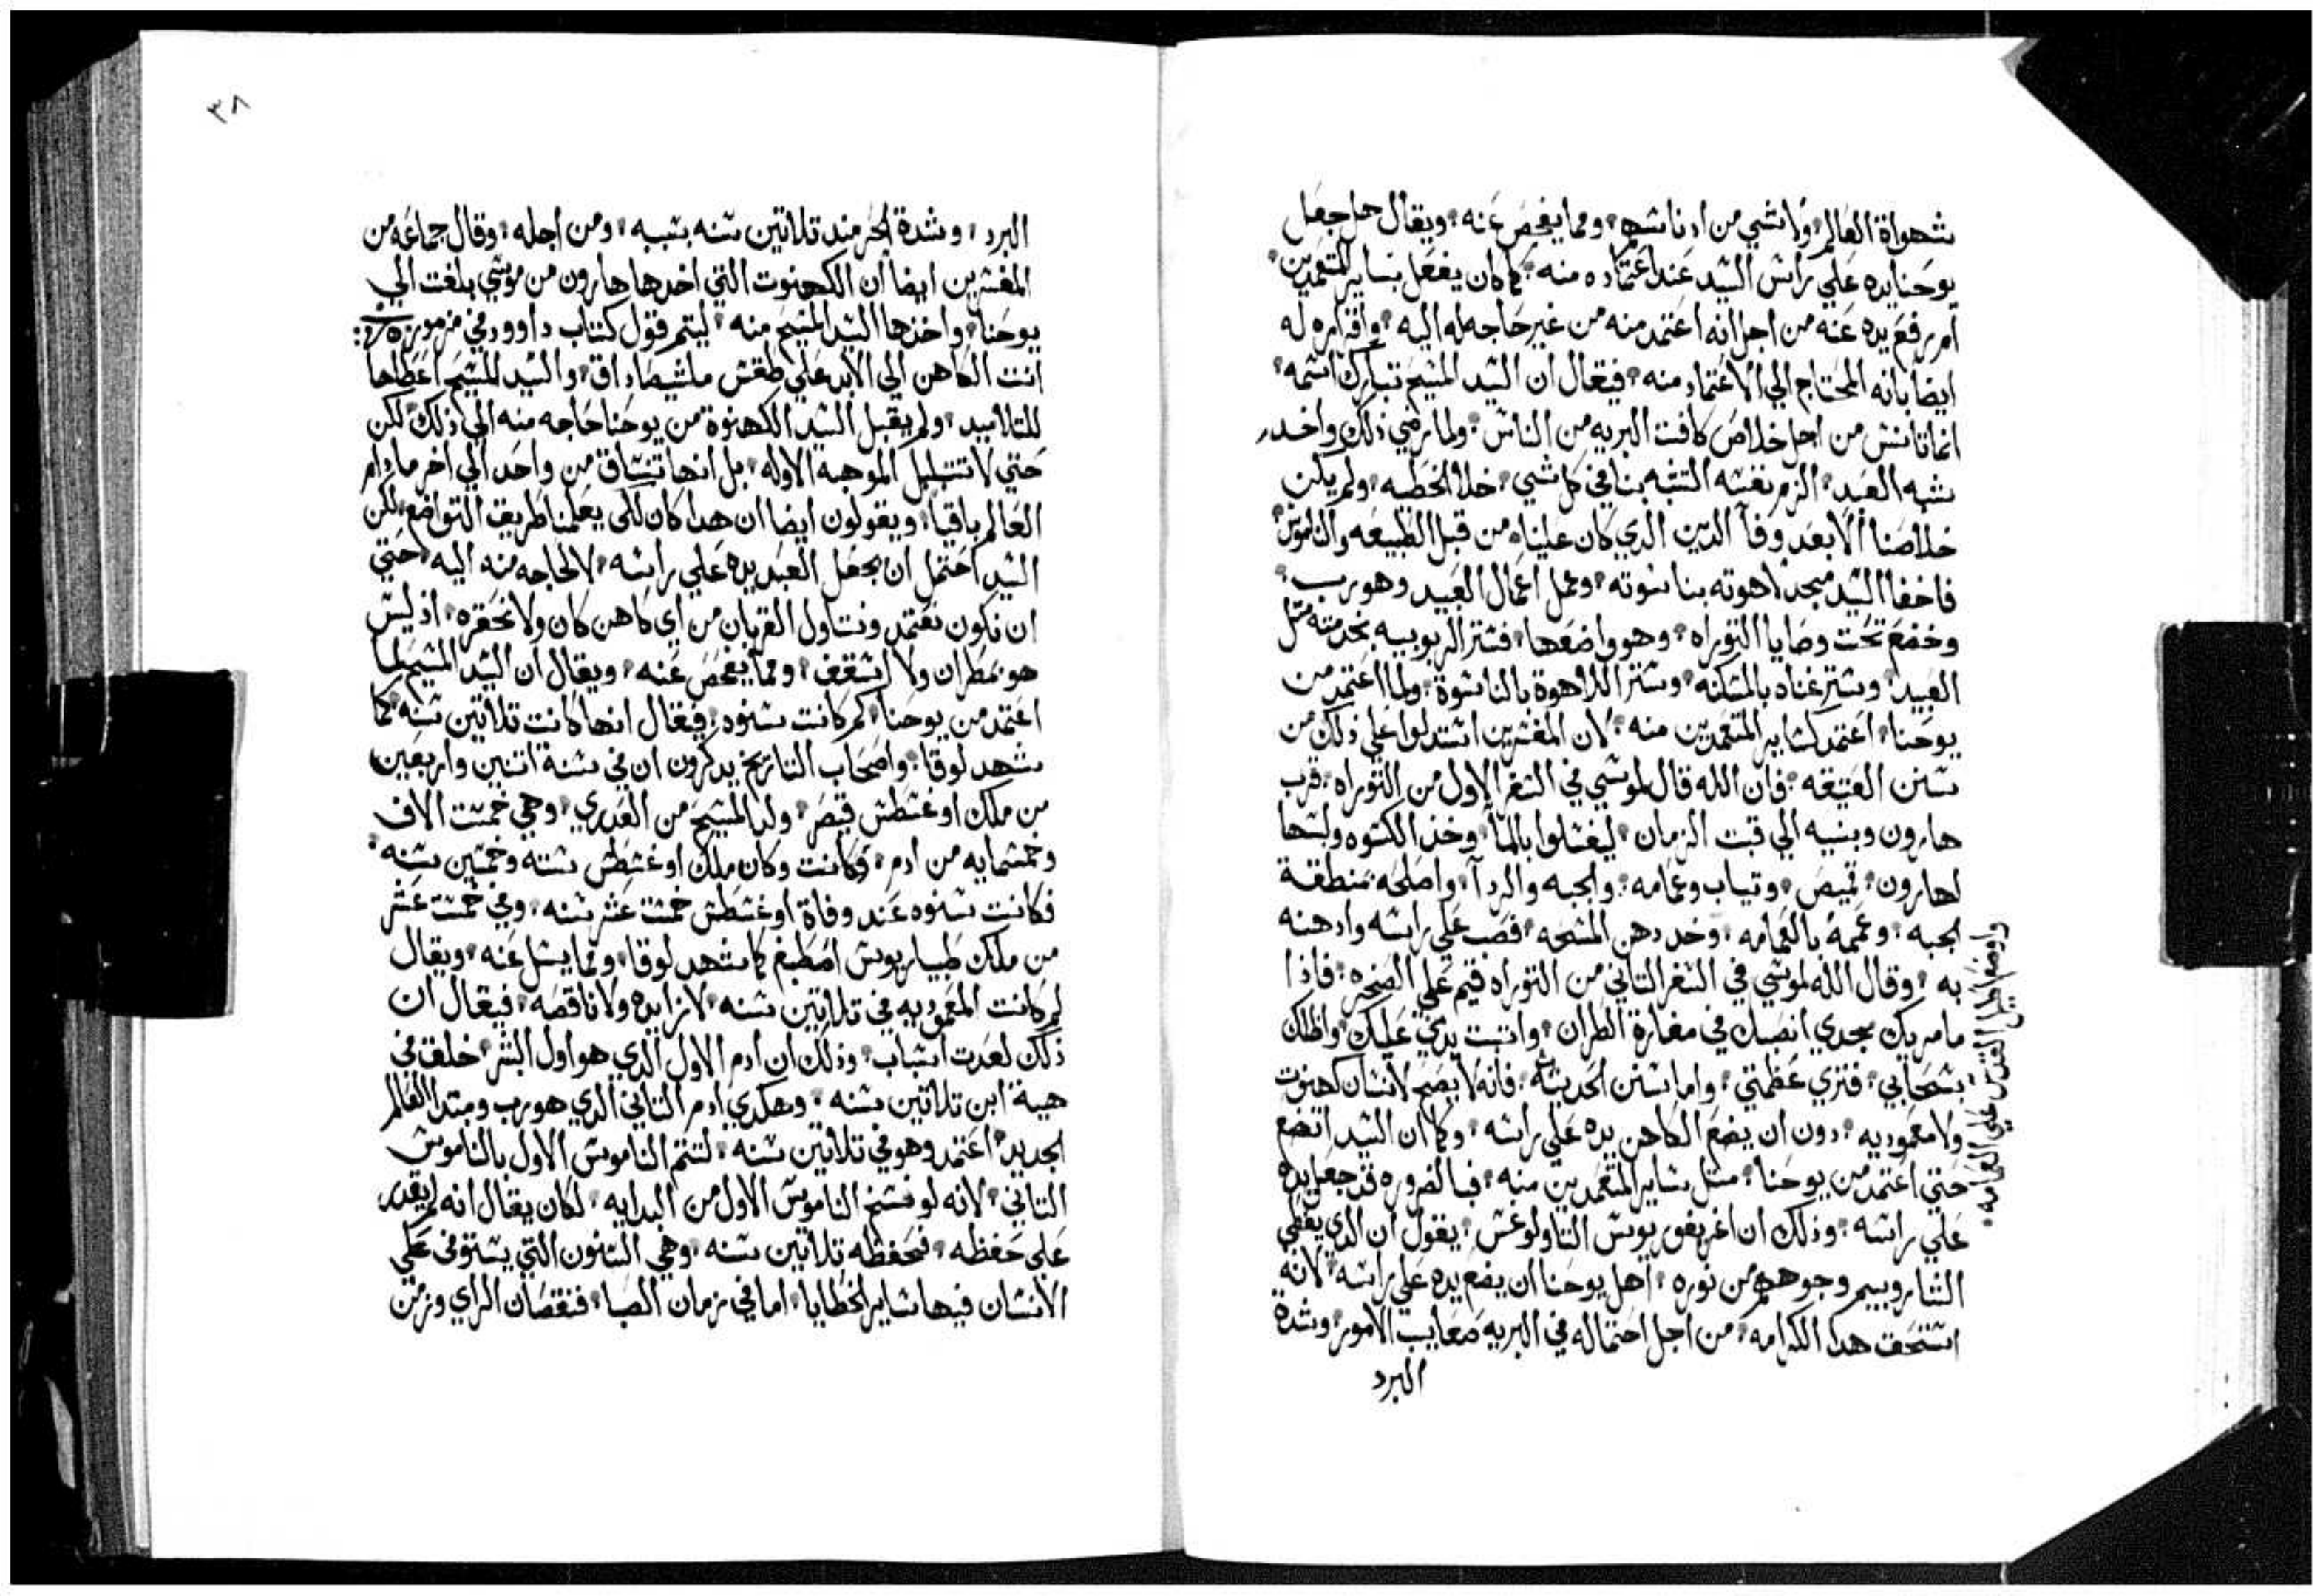 شهواة العالم ولا شي من ادناسهم ومما يفحص عنه ويقال هل جعل
يوحنا يده علي راس السيد عند اعتماده منه كما كان يفعل بساير المتعمدين
ام رفع يده عنه من اجل انه اعتمد منه من غير حاجه له اليه واقراره له
ايضا بانه المحتاج الي الاعتماد منه فيقال ان السيد المسيح تبارك اسمه
انما تانس من اجل خلاص كافت البريه من الناس ولما رضي ذلك واخد
شبه العبد الزم نفسه التشبه بنا في كل شي خلا الخطيه ولم يكن
خلاصنا الا بعد وفآ الدين الدي كان علينا من قبل الطبيعه والناموس
فاخفا السيد مجد لاهوته بناسوته وعمل اعمال العبيد وهو رب
وخضع تحت وصايا التوراه وهو واضعها فستر الربوبيه بخدمته مثل
العبيد وستر غناه بالمسكنه وستر اللاهوة بالناسوة ولما اعتمد من
يوحنا اعتمد كساير المتعمدين منه لان المفسرين استدلوا علي ذلك من
سنن العتيقه فان الله قال لموسي في السفر الاول من التوراه قرب
هارون وبنيه الي قبت الزمان ليغسلوا بالمآ وخذ الكسوه ولبسها
لهارون قميص وتياب وعمامه والجبه والردآ واصلحه بمنطقة
الجبه وعممه بالعمامه وخد دهن المسحه فصب علي راسه وادهنه
به وقال الله لموسي في السفر التاني من التوراه قيم علي الصخره فاذا
ما مر بك مجدي انصبك في مغارة الطران واتبت يدي عليك واظلك
بسحابي فتري عظمتي واما سنن الحديثه فانه لا يصح لانسان كهنوت
ولا معموديه دون ان يضع الكاهن يده علي راسه وكما ان السيد اتضع
حتي اعتمد من يوحنا مثل ساير المتعمدين منه فبالضروره قد جعل يده
علي راسه وذلك ان اغريغوريوس التاولوغس يقول ان الدي يغطي
الساروبيم وجوههم من نوره اهل يوحنا ان يضع يده علي راسه لانه
استحق هدا الكرامه من اجل احتماله في البريه صعايب الامور وشدة
البرد
واوضع اكليل القدس علي العمامه
٣٨
البرد وشدة الحر مند تلاتين سنه بسببه ومن اجله وقال جماعه من
المفسرين ايضا ان الكهنوت التي اخدها هارون من موسي بلغت الي
يوحنا واخذها السيد المسيح منه ليتم قول كتاب داوود في مزمور
انت الكاهن الي الابد علي طقس ملشيصاداق والسيد المسيح اعطاها
للتلاميد ولم يقبل السيد الكهنوة من يوحنا حاجه منه الي ذلك لكن
حتي لا تتبلبل الموهبة الاوله بل انها تنساق من واحد الي اخر ما دام
العالم باقيا ويقولون ايضا ان هدا كان لكي يعلمنا طريق التواضع لكن
السيد احتمل ان يجعل العبد يده علي راسه لا لحاجه منه اليه حتي
ان نكون نعتمد ونتناول القربان من اي كاهن كان ولا نحقره اذ ليس
هو بمطران ولا اسقف ومما يفحص عنه ويقال ان السيد المسيح لما
اعتمد من يوحنا كم كانت سنوه فيقال انها كانت تلاتين سنه كما
شهد لوقا واصحاب التاريخ يدكرون ان في سنة اتنين واربعين
من ملك اوغسطس قيصر ولد المسيح من العدري وهي خمست الاف
وخمسمايه من ادم وكانت وكان ملك اوغسطس ستة وخمسين سنه
فكانت سنوه عند وفاة اوغسطس خمسة عشر سنه وفي خمست عشر
من ملك طيباريوس اصطبغ كما شهد لوقا ومما يسل عنه ويقال
لم كانت المعموديه في تلاتين سنه لا زايده ولا ناقصه فيقال ان
ذلك لعدت اسباب وذلك ان ادم الاول الدي هو اول البشر خلق في
هية ابن تلاتين سنه وهكدي ادم التاني الدي هو رب ومبتدا العالم
الجديد اعتمد وهو في تلاتين سنه لتتم الناموس الاول بالناموس
التاني لانه لو فسخ الناموس الاول من البدايه لكان يقال انه لم يقدر
علي حفظه فحفظه تلاتين سنه وهي السنون التي يستوفي علي
الانسان فيها ساير الخطايا اما في زمان الصبا فنقصان الراي وزمن